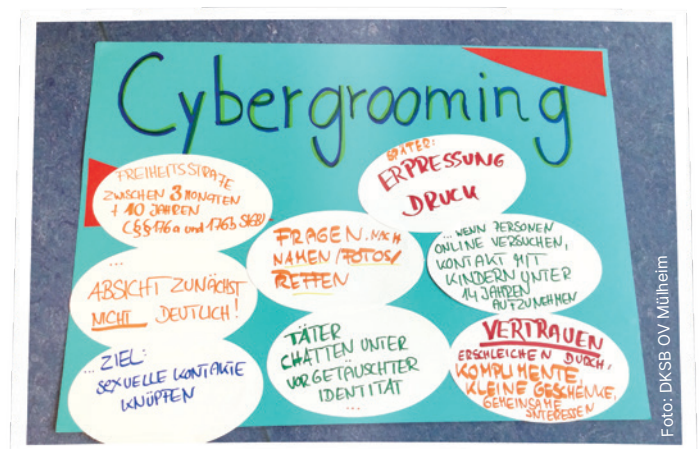 Cybergrooming
FREIHEITSSTRAFE
ZWISCHEN 3 MONATEN
+ 10 JAHREN
(§§176a und 176b StGB)
SPÄTER:
ERPRESSUNG
DRUCK
FRAGEN NACH
NAMEN/FOTOS/
TREFFEN
...WENN PERSONEN
ONLINE VERSUCHEN,
KONTAKT MIT
KINDERN UNTER
14 JAHREN
AUFZUNEHMEN
...
ABSICHT ZUNÄCHST
NICHT DEUTLICH!
...ZIEL:
SEXUELLE KONTAKTE
KNÜPFEN
TÄTER
CHATTEN UNTER
VORGETÄUSCHTER
IDENTITÄT
...
VERTRAUEN
ERSCHLEICHEN DURCH:
KOMPLIMENTE,
KLEINE GESCHENKE,
GEMEINSAME
INTERESSEN
Foto: DKSB OV Mülheim